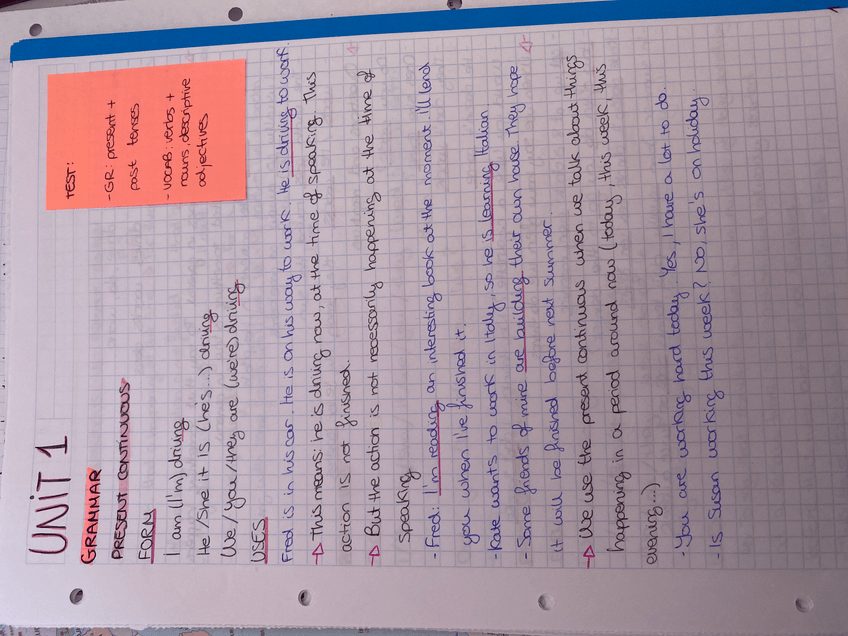 UNIT 1
TEST:
- GR: present +
past tenses
- VOCAB: verbs +
nouns, descriptive
adjectives
GRAMMAR
PRESENT CONTINUOUS
FORM
I am (I'm) driving
He/She it IS (he's...) driving
We/You/they are (we're) driving
USES
Fred is in his car. He is on his way to work. He is driving to work.
→ This means: he is driving now, at the time of speaking. This
action is not finished.
→ But the action is not necessarily happening at the time of
speaking
- Fred: I'm reading an interesting book at the moment. I'll lend
you when I've finished it.
- Kate wants to work in Italy, so he is learning Italian
- Some friends of mine are building their own house. They hope
it will be finished before next summer.
→ We use the present continuous when we talk about things
happening in a period around now (today, this week, this
evening...)
- You are working hard today. Yes, I have a lot to do.
- Is Susan working this week? No, she's on holiday.